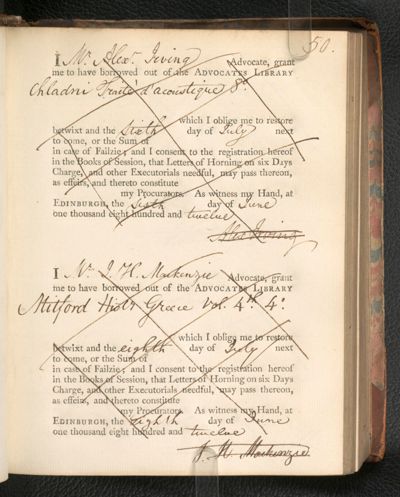 50.
I Mr. Alexr. Irving Advocate, grant
me to have borrowed out of the ADVOCATES LIBRARY
Chladni Traité d'acoustique 8o.
which I oblige me to restore
betwixt and the sixth day of July next
to come, or the Sum of
in case of Failzie; and I consent to the registration hereof
in the Books of Session, that Letters of Horning on six Days
Charge, and other Executorials needful, may pass thereon,
as effeirs, and thereto constitute
my Procurators. As witness my Hand, at
EDINBURGH, the sixth day of June
one thousand eight hundred and twelve
Alex Irving
I Mr. J. H. Mackenzie Advocate, grant
me to have borrowed out of the ADVOCATES LIBRARY
Mitford Histy Greece vol. 4th 4o.
which I oblige me to restore
betwixt and the eighth day of July next
to come, or the Sum of
in case of Failzie; and I consent to the registration hereof
in the Books of Session, that Letters of Horning on six Days
Charge, and other Executorials needful, may pass thereon,
as effeirs, and thereto constitute
my Procurators. As witness my Hand, at
EDINBURGH, the eighth day of June
one thousand eight hundred and twelve
J. H. Mackenzie